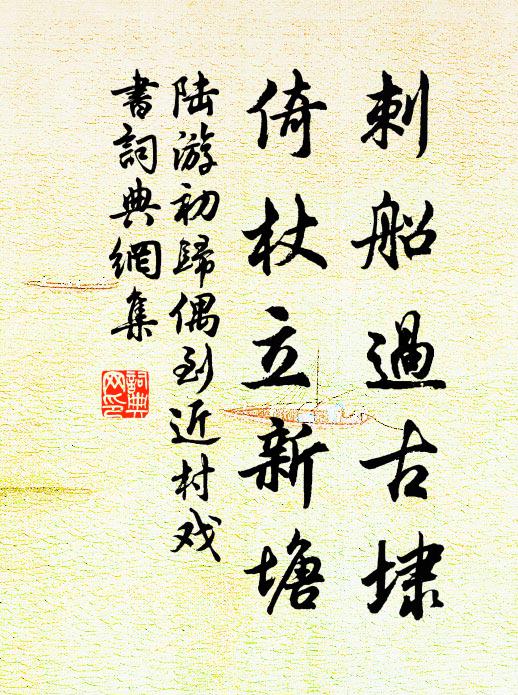 刺船過古埭
倚杖立新塘
陸游初歸偶到近村戏
書詞典網集
詞典网印